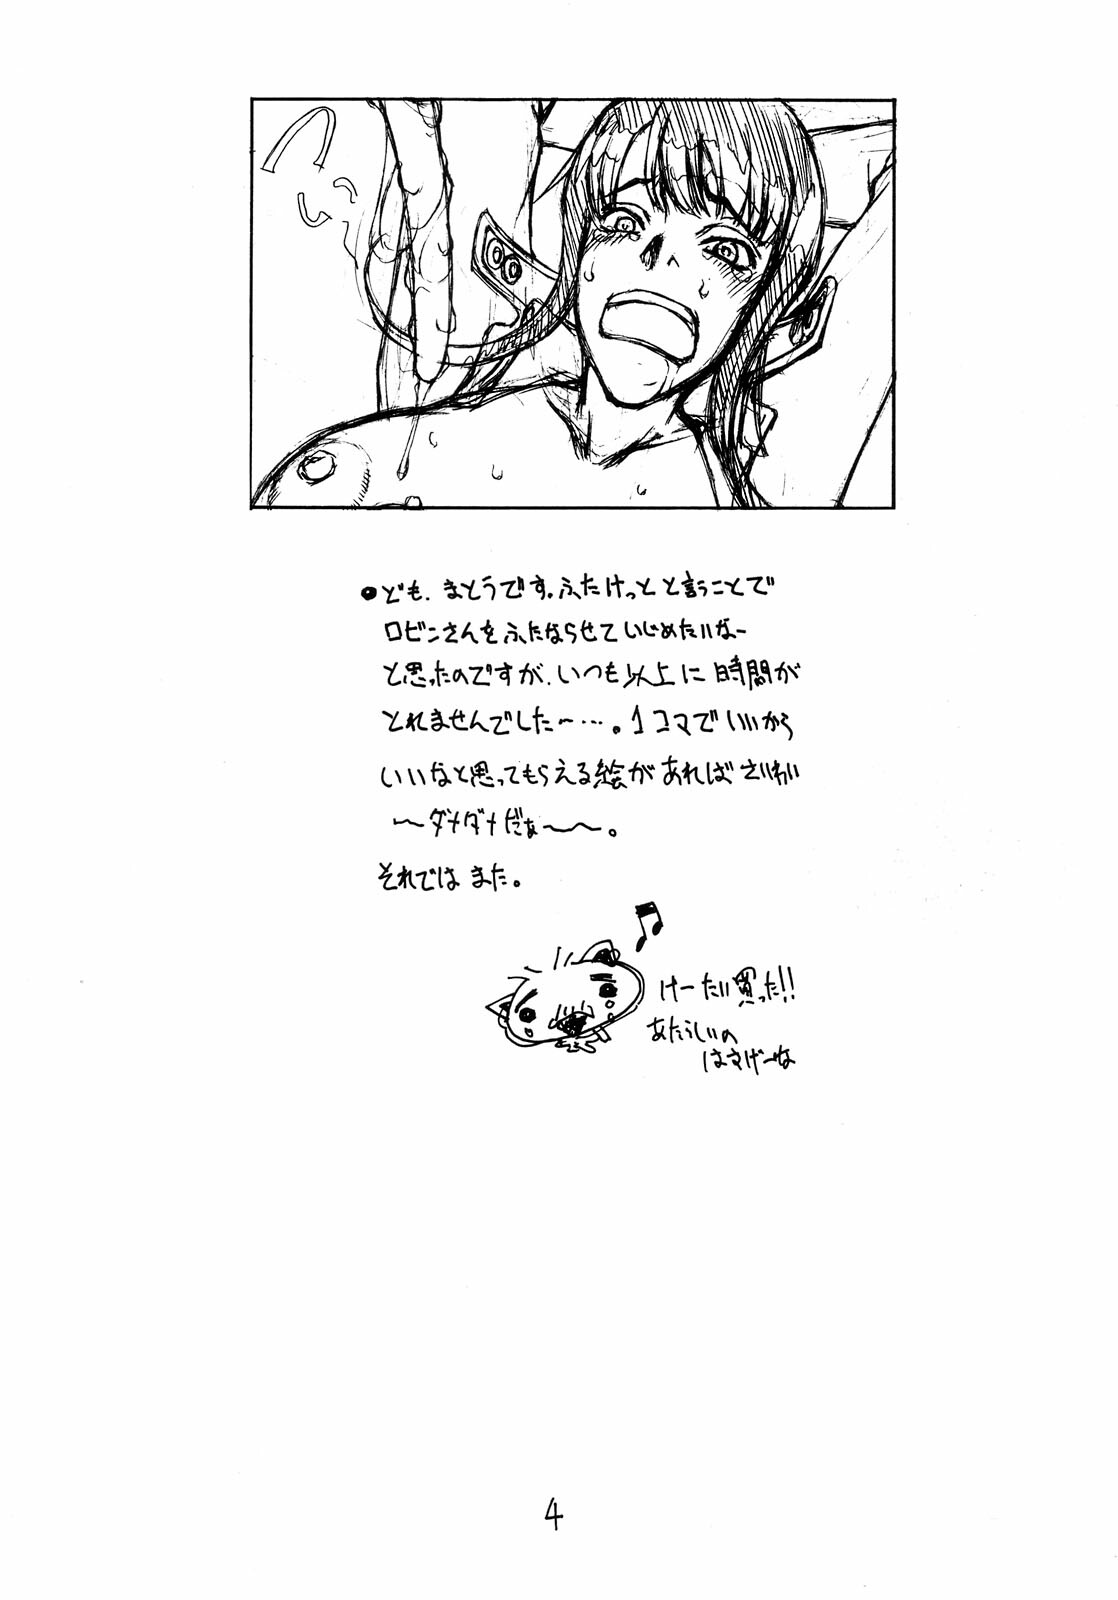 ●ども、まとうです。ふたけっとと言うことで
ロビンさんをふたならせていじめたいなー
と思ったのですが、いつも以上に時間が
とれませんでした〜…。1コマでいいから
いいなと思ってもらえる絵があればさいわい
〜ダメダメだぁ〜〜。
それではまた。
けーたい買った!!
あたらしいの
はすげーな
4